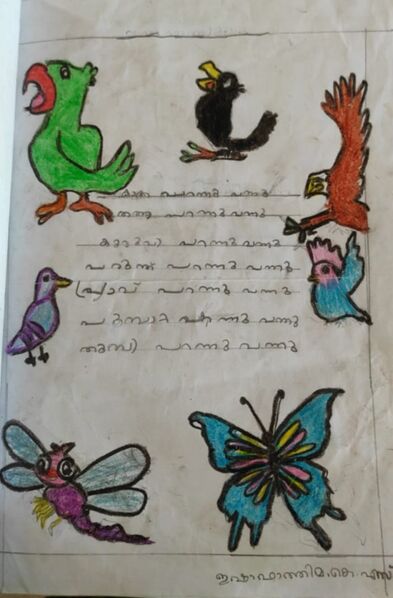 കാക്ക പറന്നു വന്നു
തത്ത പറന്നു വന്നു
കുരുവി പറന്നു വന്നു
പരുന്ത് പറന്നു വന്നു
പ്രാവ് പറന്നു വന്നു
പറന്നു വന്നു
തുമ്പി പറന്നു വന്നു
ഇഷാഫാത്തിമ.കെ.എസ്